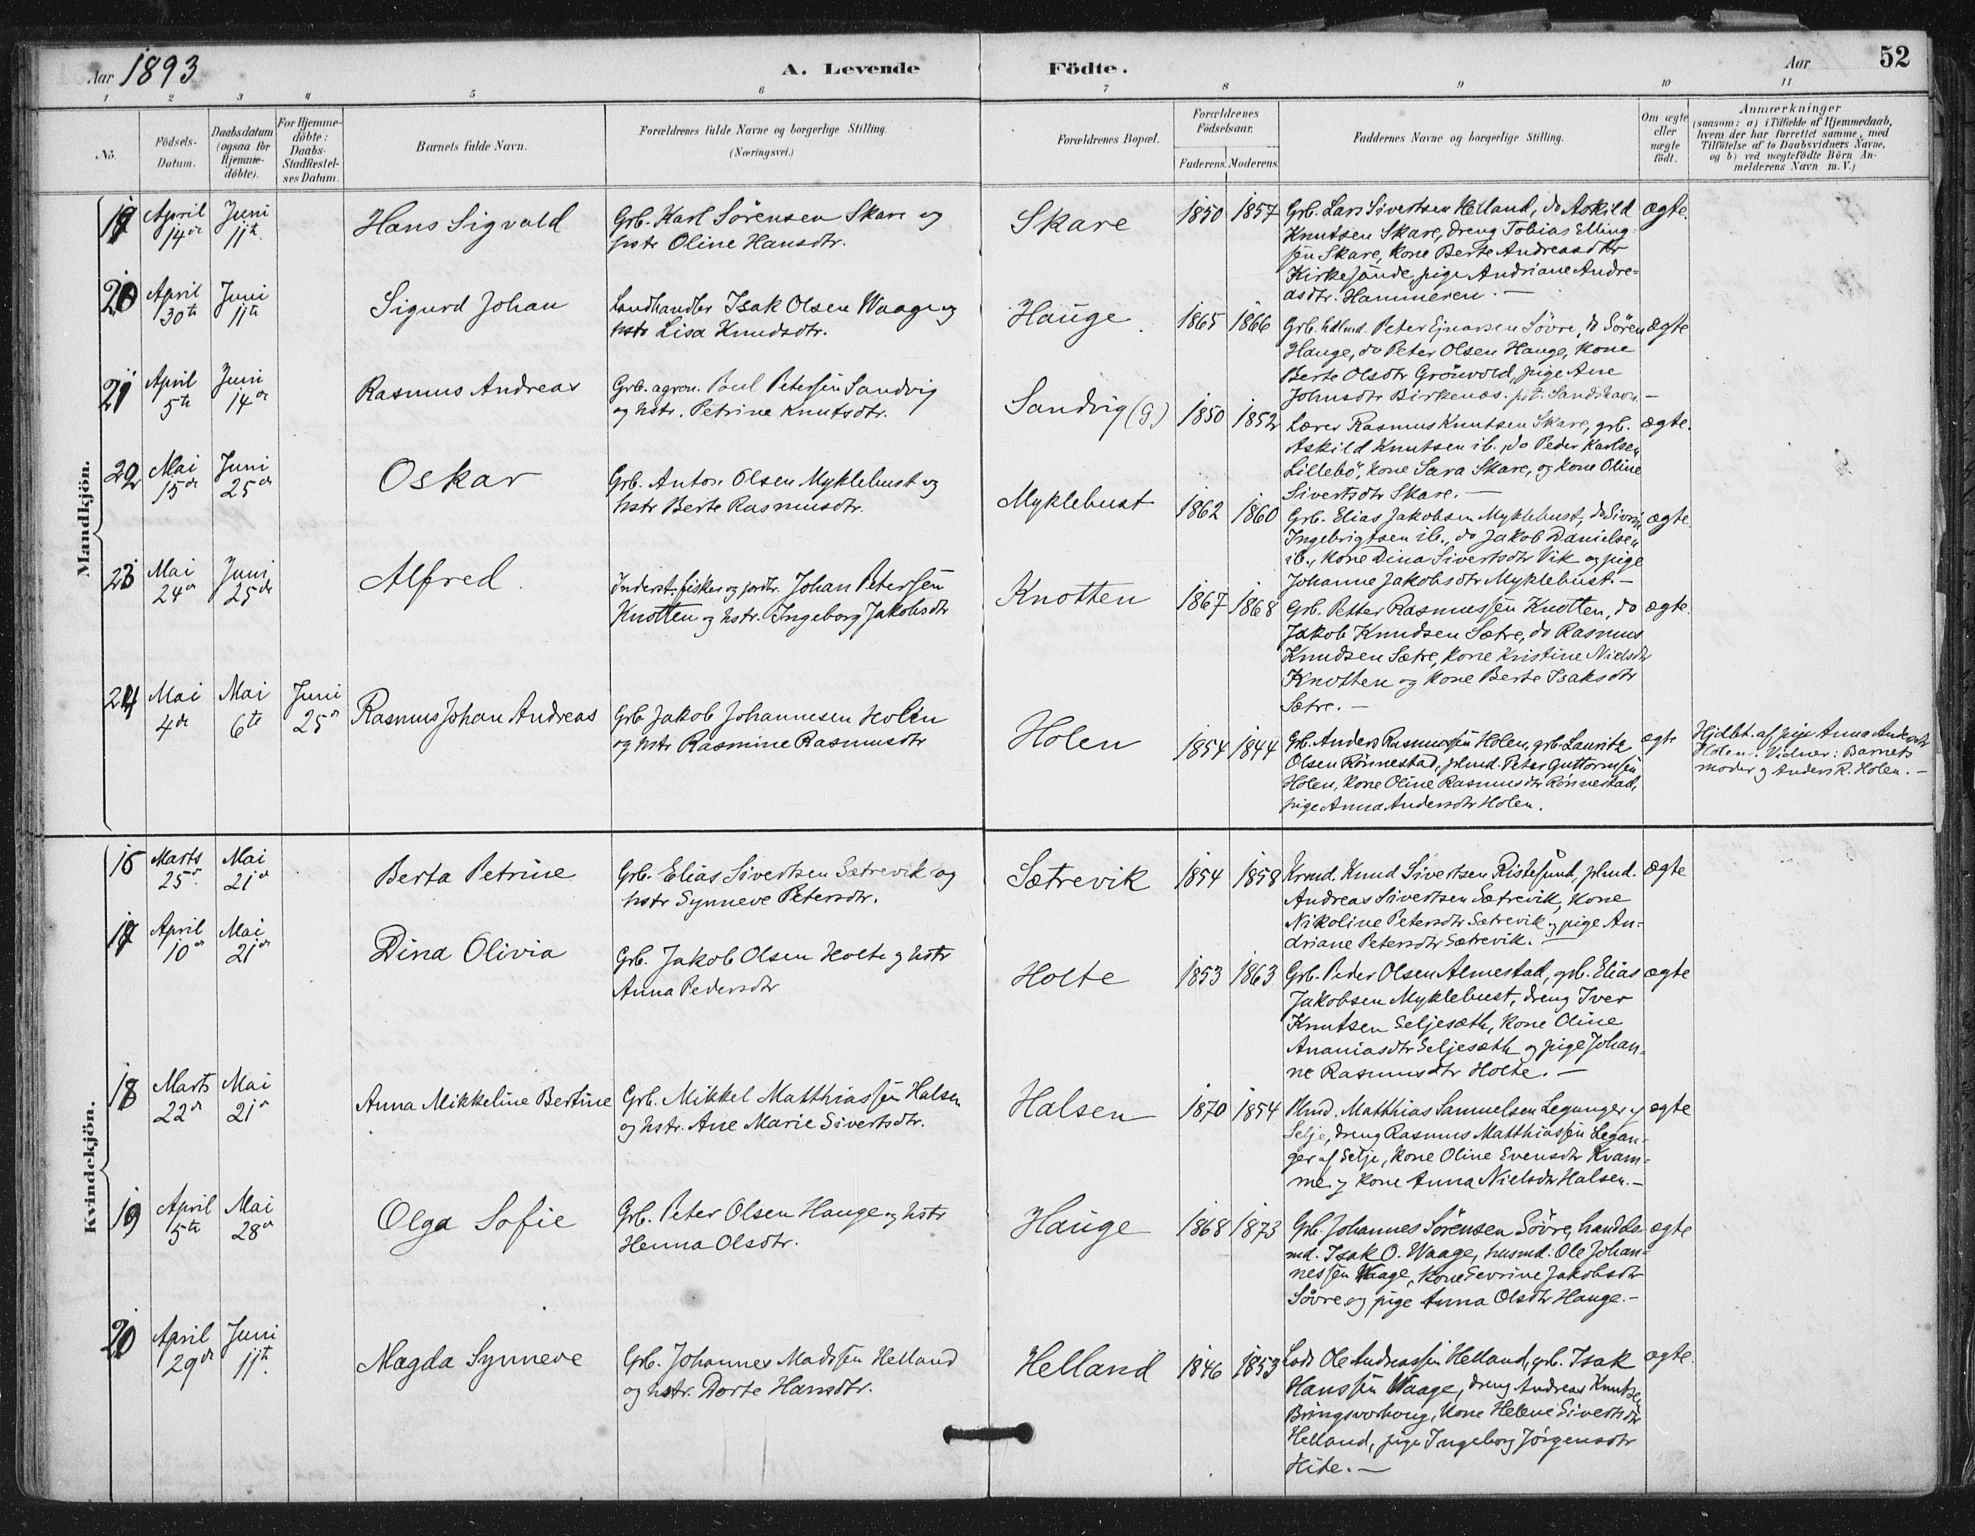 Aar 1893
A. Levende Födte.
Aar
52
1 2 3 4 5 6 7 8 9 10 11
No.
Födsels-
Datum.
Daabsdatum
(ogsaa for
Hjemme-
döbte).
For Hjemme-
döbte:
Daabs-
Stadfæstel-
ses Datum.
Barnets fulde Navn.
Forældrenes fulde Navne og borgerlige Stilling.
(Næringsvei.)
Forældrenes Bopæl.
Forældrenes
Födselsaar.
Faderens. Moderens.
Faddernes Navne og borgerlige Stilling.
Om ægte
eller
uægte
födt.
Anmærkninger
(saasom: a) i Tilfælde af Hjemmedaab,
hvem der har forrettet samme, med
Tilföielse af to Daabsvidners Navne,
og b) ved uægtefödte Börn An-
melderens Navn m. V.)
Mandkjön.
19 April 14de Juni 11te
Hans Sigvald
Grb. Karl Sörensen Skare og
hstr Oline Hansdtr.
Skare
1850 1857
Grb. Lars Sivertsen Helland, do Askild
Knutsen Skare, dreng Tobias Elling-
sen Skare, kone Berte Andreasdtr
Kirkesunde, pige Andriane Andre-
asdtr. Hammeren. —
ægte.
20 April 30te Juni 11te
Sigurd Johan
Landhandler Isak Olsen Waage og
hstr Lisa Knudsdtr.
Hauge.
1865 1866
Grb. Peter Ejnarsen Sövre, do Sören
Hauge, do Peter Olsen Hauge, kone
Berte Olsdtr Grönvold, pige Ane
Johnsdtr Birkenæs. Sandshavn —
ægte
21 April 5te Juni 14de
Rasmus Andreas
Grb. agron. Poul Petersen Sandvig
og hstr. Petrine Knutsdtr.
Sandvig (G)
1850 1852
Lærer Rasmus Knutsen Skare, grb.
Askild Knutsen ib., do Peder Karlsen
Lillebö, kone Sara Skare, og kone Oline
Sivertsdtr Skare. —
ægte.
22 Mai 15de Juni 25de
Oskar
Grb. Anton Olsen Myklebust og
hstr Berte Rasmusdtr.
Myklebust
1862 1860
Grb. Elias Jakobsen Myklebust, do Sivert
Ingebrigtsen ib., do Jakob Danielsen
ib., kone Dina Sivertsdtr Vik og pige
Johanne Jakobsdtr Myklebust. —
ægte
23 Mai 24de Juni 25de
Alfred.
Inderst. fisker og jordbr. Johan Petersen
Knotten og hstr. Ingeborg Jakobsdtr
Knotten
1867 1868
Grb. Petter Rasmussen Knotten, do
Jakob Knudsen Sætre, do Rasmus
Knudsen Sætre, kone Kristine Nielsdtr
Knotten og kone Berte Isaksdtr
Sætre. —
ægte.
24 Mai 4de Mai 6te Juni 25de
Rasmus Johan Andreas
Grb. Jakob Johannesen Holen
og hstr Rasmine Rasmusdtr
Holen
1854 1844
Grb. Anders Rasmussen Holen, grb. Lauritz
Olsen Rönnestad, plmd. Peter Guttormsen
Holen, kone Oline Rasmusdtr Rönnestad,
pige Anna Andersdtr Holen.
ægte
Hjdbt. af pige Anna Andersdtr
Holen. Vidner: Barnets
moder og Anders R. Holen. —
Kvindekjön.
16 Marts 25de Mai 21de
Berta Petrine
Grb. Elias Sivertsen Sætrevik og
hstr Synneve Petersdtr.
Sætrevik
1854 1858
Krmd. Knud Sivertsen Ristesund, plmd.
Andreas Sivertsen Sætrevik, kone
Nikoline Petersdtr Sætrevik og pige An-
driane Petersdtr Sætrevik. —
ægte
17 April 10de Mai 21de
Dina Olivia
Grb. Jakob Olsen Holte og hstr
Anna Pedersdtr
Holte
1853 1863
Grb. Peder Olsen Almestad, grb. Elias
Jakobsen Myklebust, dreng Iver
Knutsen Seljesæth, kone Oline
Ananiasdtr Seljesæth og pige Johan-
ne Rasmusdtr Holte. —
ægte
18 Marts 22de Mai 21de
Anna Mikkeline Bertine
Grb. Mikkel Matthiassen Halsen
og hstr. Ane Marie Sivertsdtr.
Halsen
1870 1854
Plmd. Matthias Samuelsen Leganger af
Selje, dreng Rasmus Matthiassen Legan-
ger af Selje, kone Oline Evensdtr Kvam-
me og kone Anna Nielsdtr Halsen. —
ægte
19 April 5te Mai 28de
Olga Sofie
Grb. Peter Olsen Hauge og hstr
Henna Olsdtr.
Hauge
1868 1873
Grb. Johannes Sörensen Sövre, handels-
md. Isak O. Waage, husmd. Ole Johan-
nessen Waage, kone Sevrine Jakobsdtr
Sövre og pige Anna Olsdtr Hauge. —
ægte
20 April 29de Juni 11te
Magda Synneve
Grb. Johannes Madssen Helland
og hstr. Dorte Hansdtr.
Helland
1846 1853
Lods Ole Andreassen Helland, grb. Isak
Hanssen Waage, dreng Andreas Knutsen
Bringsvorhoug, kone Helene Sivertsdtr
Helland, pige Ingeborg Jörgensdtr
Hide. —
ægte.